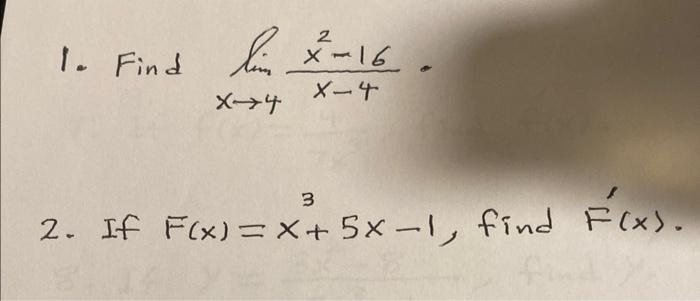 1. Find lim x→4 (x²-16)/(x-4).
2. If F(x) = x³+5x-1, find F'(x).